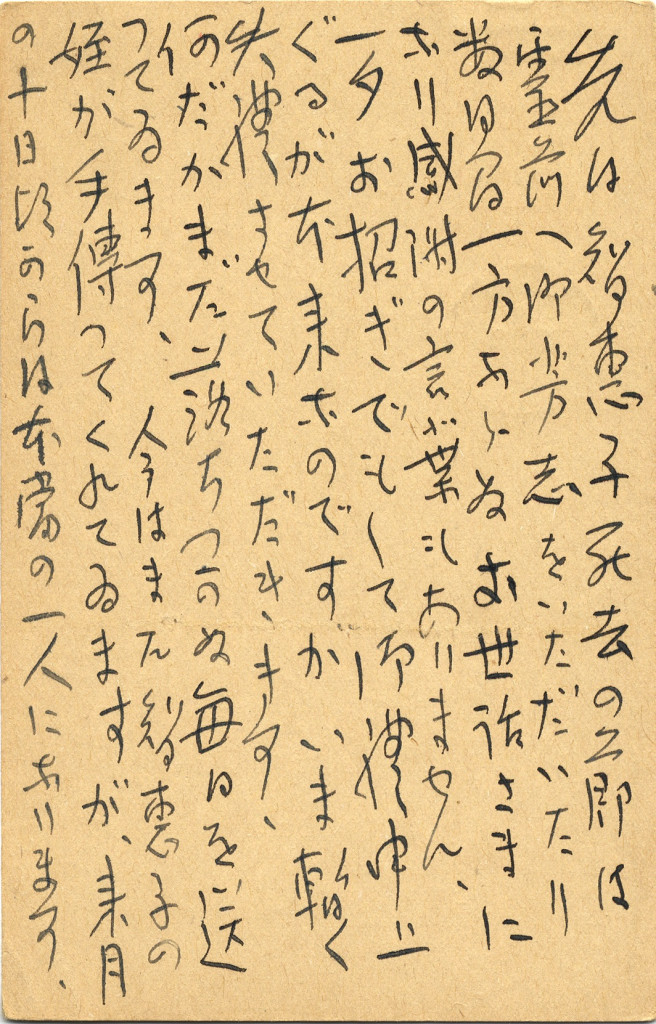 先は智恵子死去の節は
霊前へ御芳志をいただいたり
数日間一方ならぬお世話さまに
なり感謝の言葉もありません、
一夕お招ぎでもして御禮申上
ぐるが本来なのですが いま暫く
失禮させていただきます、
何だかまだ落ちつかぬ毎日を送
つてゐます、 今はまだ智恵子の
姪が手傳つてくれてゐますが、来月
の十日頃からは本當の一人になります、